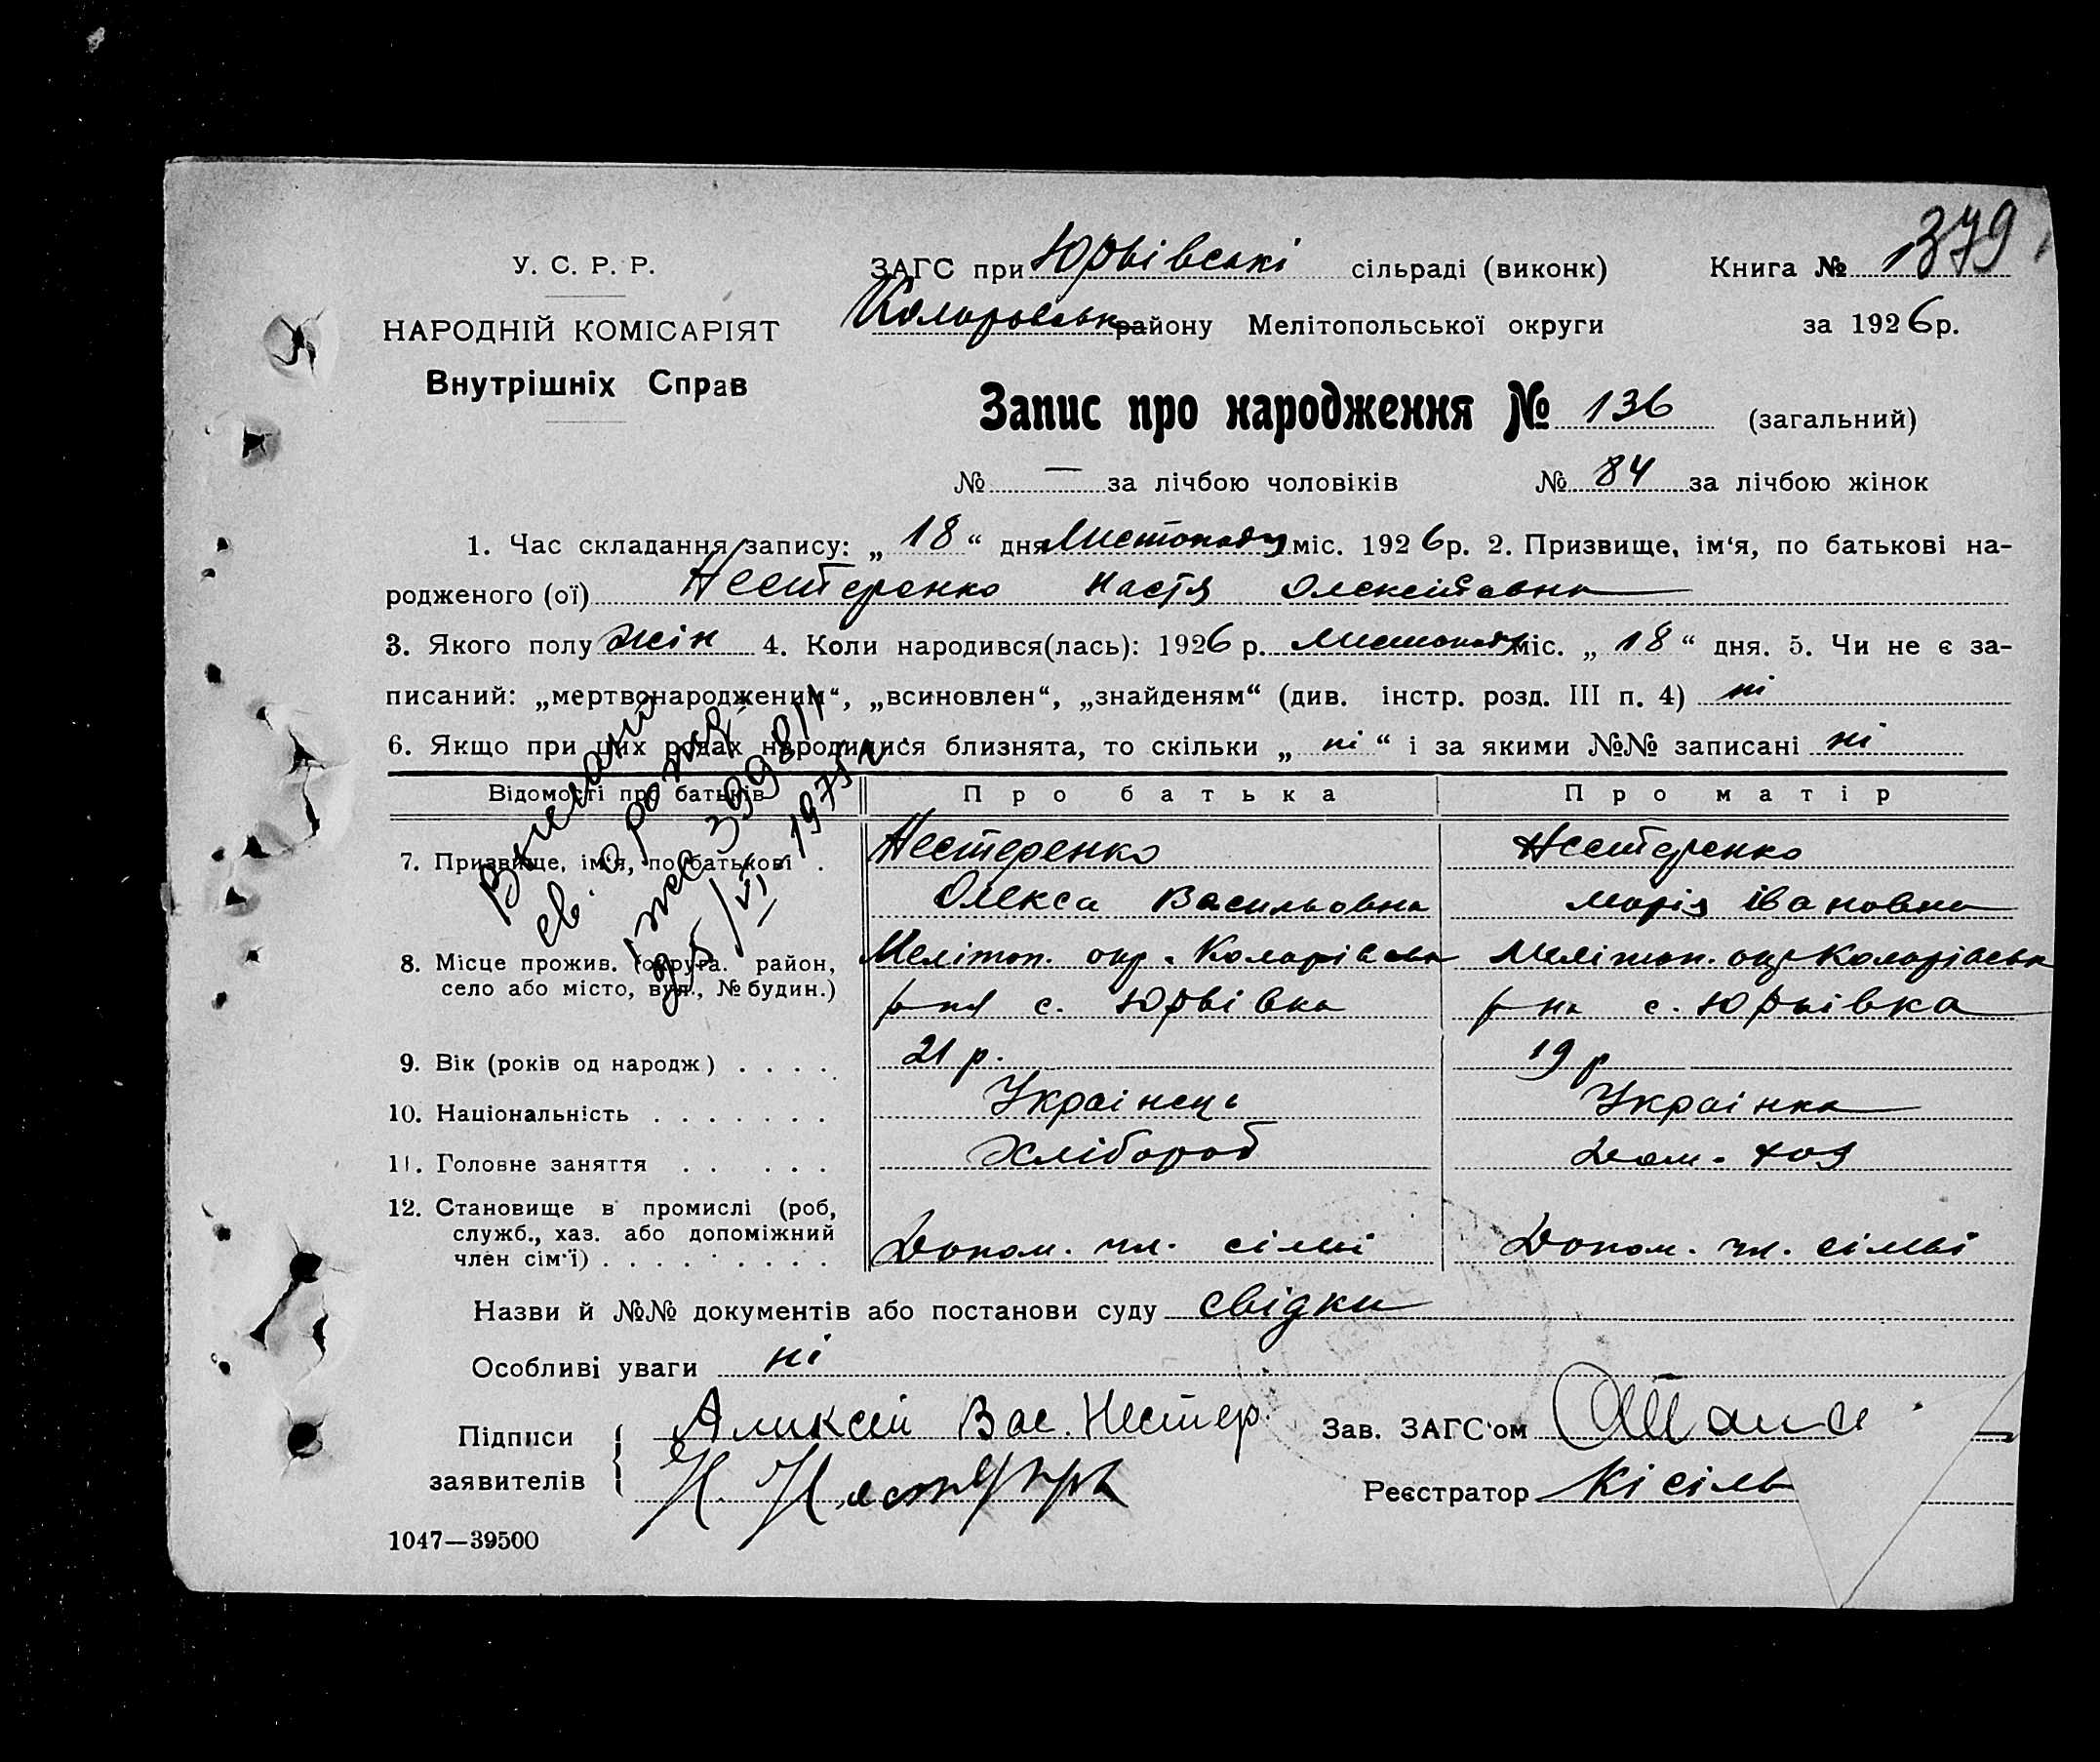 У. С. Р. Р.
НАРОДНІЙ КОМІСАРІЯТ
Внутрішніх Справ
ЗАГС при Юрьівські сільраді (виконк) Книга № 379
Коларовськ району Мелітопольської округи за 1926 р.
Запис про народження № 136 (загальний)
№ — за лічбою чоловіків № 84 за лічбою жінок
1. Час складання запису: „ 18 “ дня Листопаду міс. 1926 р. 2. Призвище, ім‘я, по батькові на-
родженого (ої) Нестеренко Настя Олексіївна
3. Якого полу жін 4. Коли народився(лась): 1926 р. Листопаду міс. „ 18 “ дня. 5. Чи не є за-
писаний: „мертвонародженим“, „всиновлен“, „знайденям“ (див. інстр. розд. III п. 4) ні
6. Якщо при цих родах народилися близнята, то скільки „ ні “ і за якими №№ записані ні
св. о рожд.
25/VI 1975 г.
Відомості про батьків Про батька Про матір
7. Призвище, ім‘я, по батькові . Нестеренко Нестеренко
Олекса Васильовна Марія Івановна
8. Місце прожив. (округа. район,
село або місто, вул., № будин.)
Меліт­оп. окр. Коларівськ Мелітоп. окр Коларівськ
р-ня с. Юрьівка р-на с. Юрьівка
9. Вік (років од народж) . . . . . 21 р. 19 р
10. Національність . . . . . . . Українець Українка
11. Головне заняття . . . . . Хлібороб Дом. хоз
12. Становище в промислі (роб,
служб., хаз. або допоміжний
член сім‘ї) . . . . . . . . . Допом. чл. сімьі Допом. чл. сімьі
Назви й №№ документів або постанови суду свідки
Особливі уваги ні
Підписи
заявителів
Аликсей Вас. Нестер.
Зав. ЗАГС‘ом
Реєстратор Кісіль
1047—39500